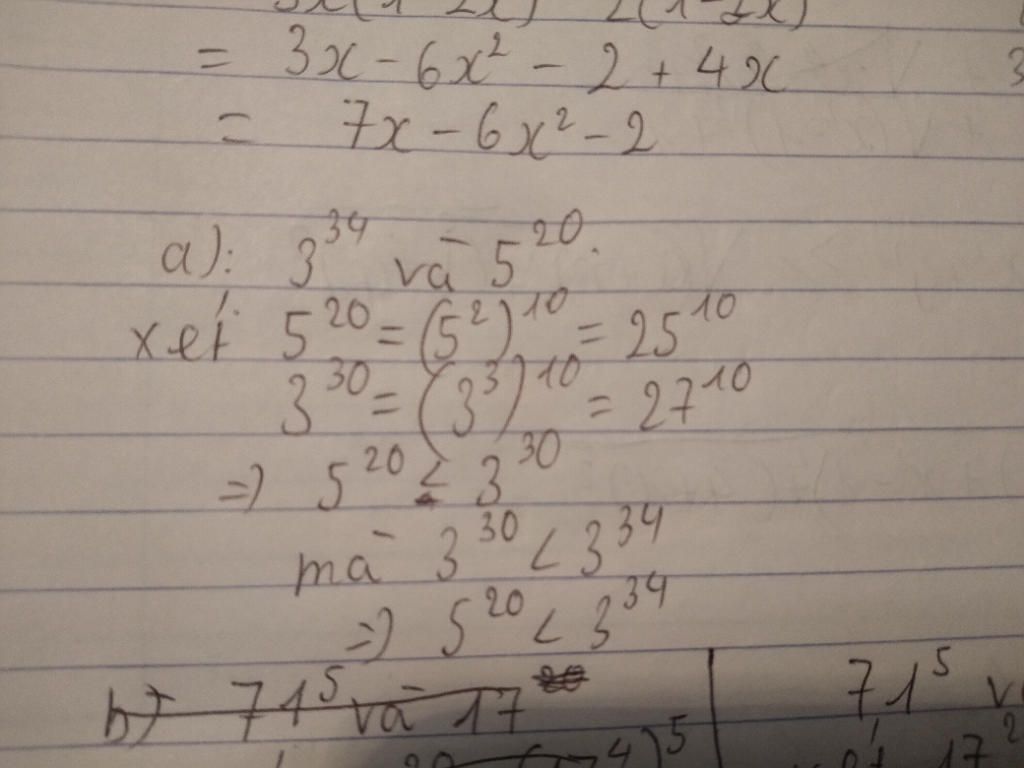 3x(1-2x) 2(1-2x)
= 3x - 6x² - 2 + 4x
= 7x - 6x² - 2
a): 3^34 và 5^20.
xét 5^20 = (5^2)^10 = 25^10
3^30 = (3^3)^10 = 27^10
=) 5^20 < 3^30
mà 3^30 < 3^34
=) 5^20 < 3^34
b) 71^5 và 17
71^5
17^2